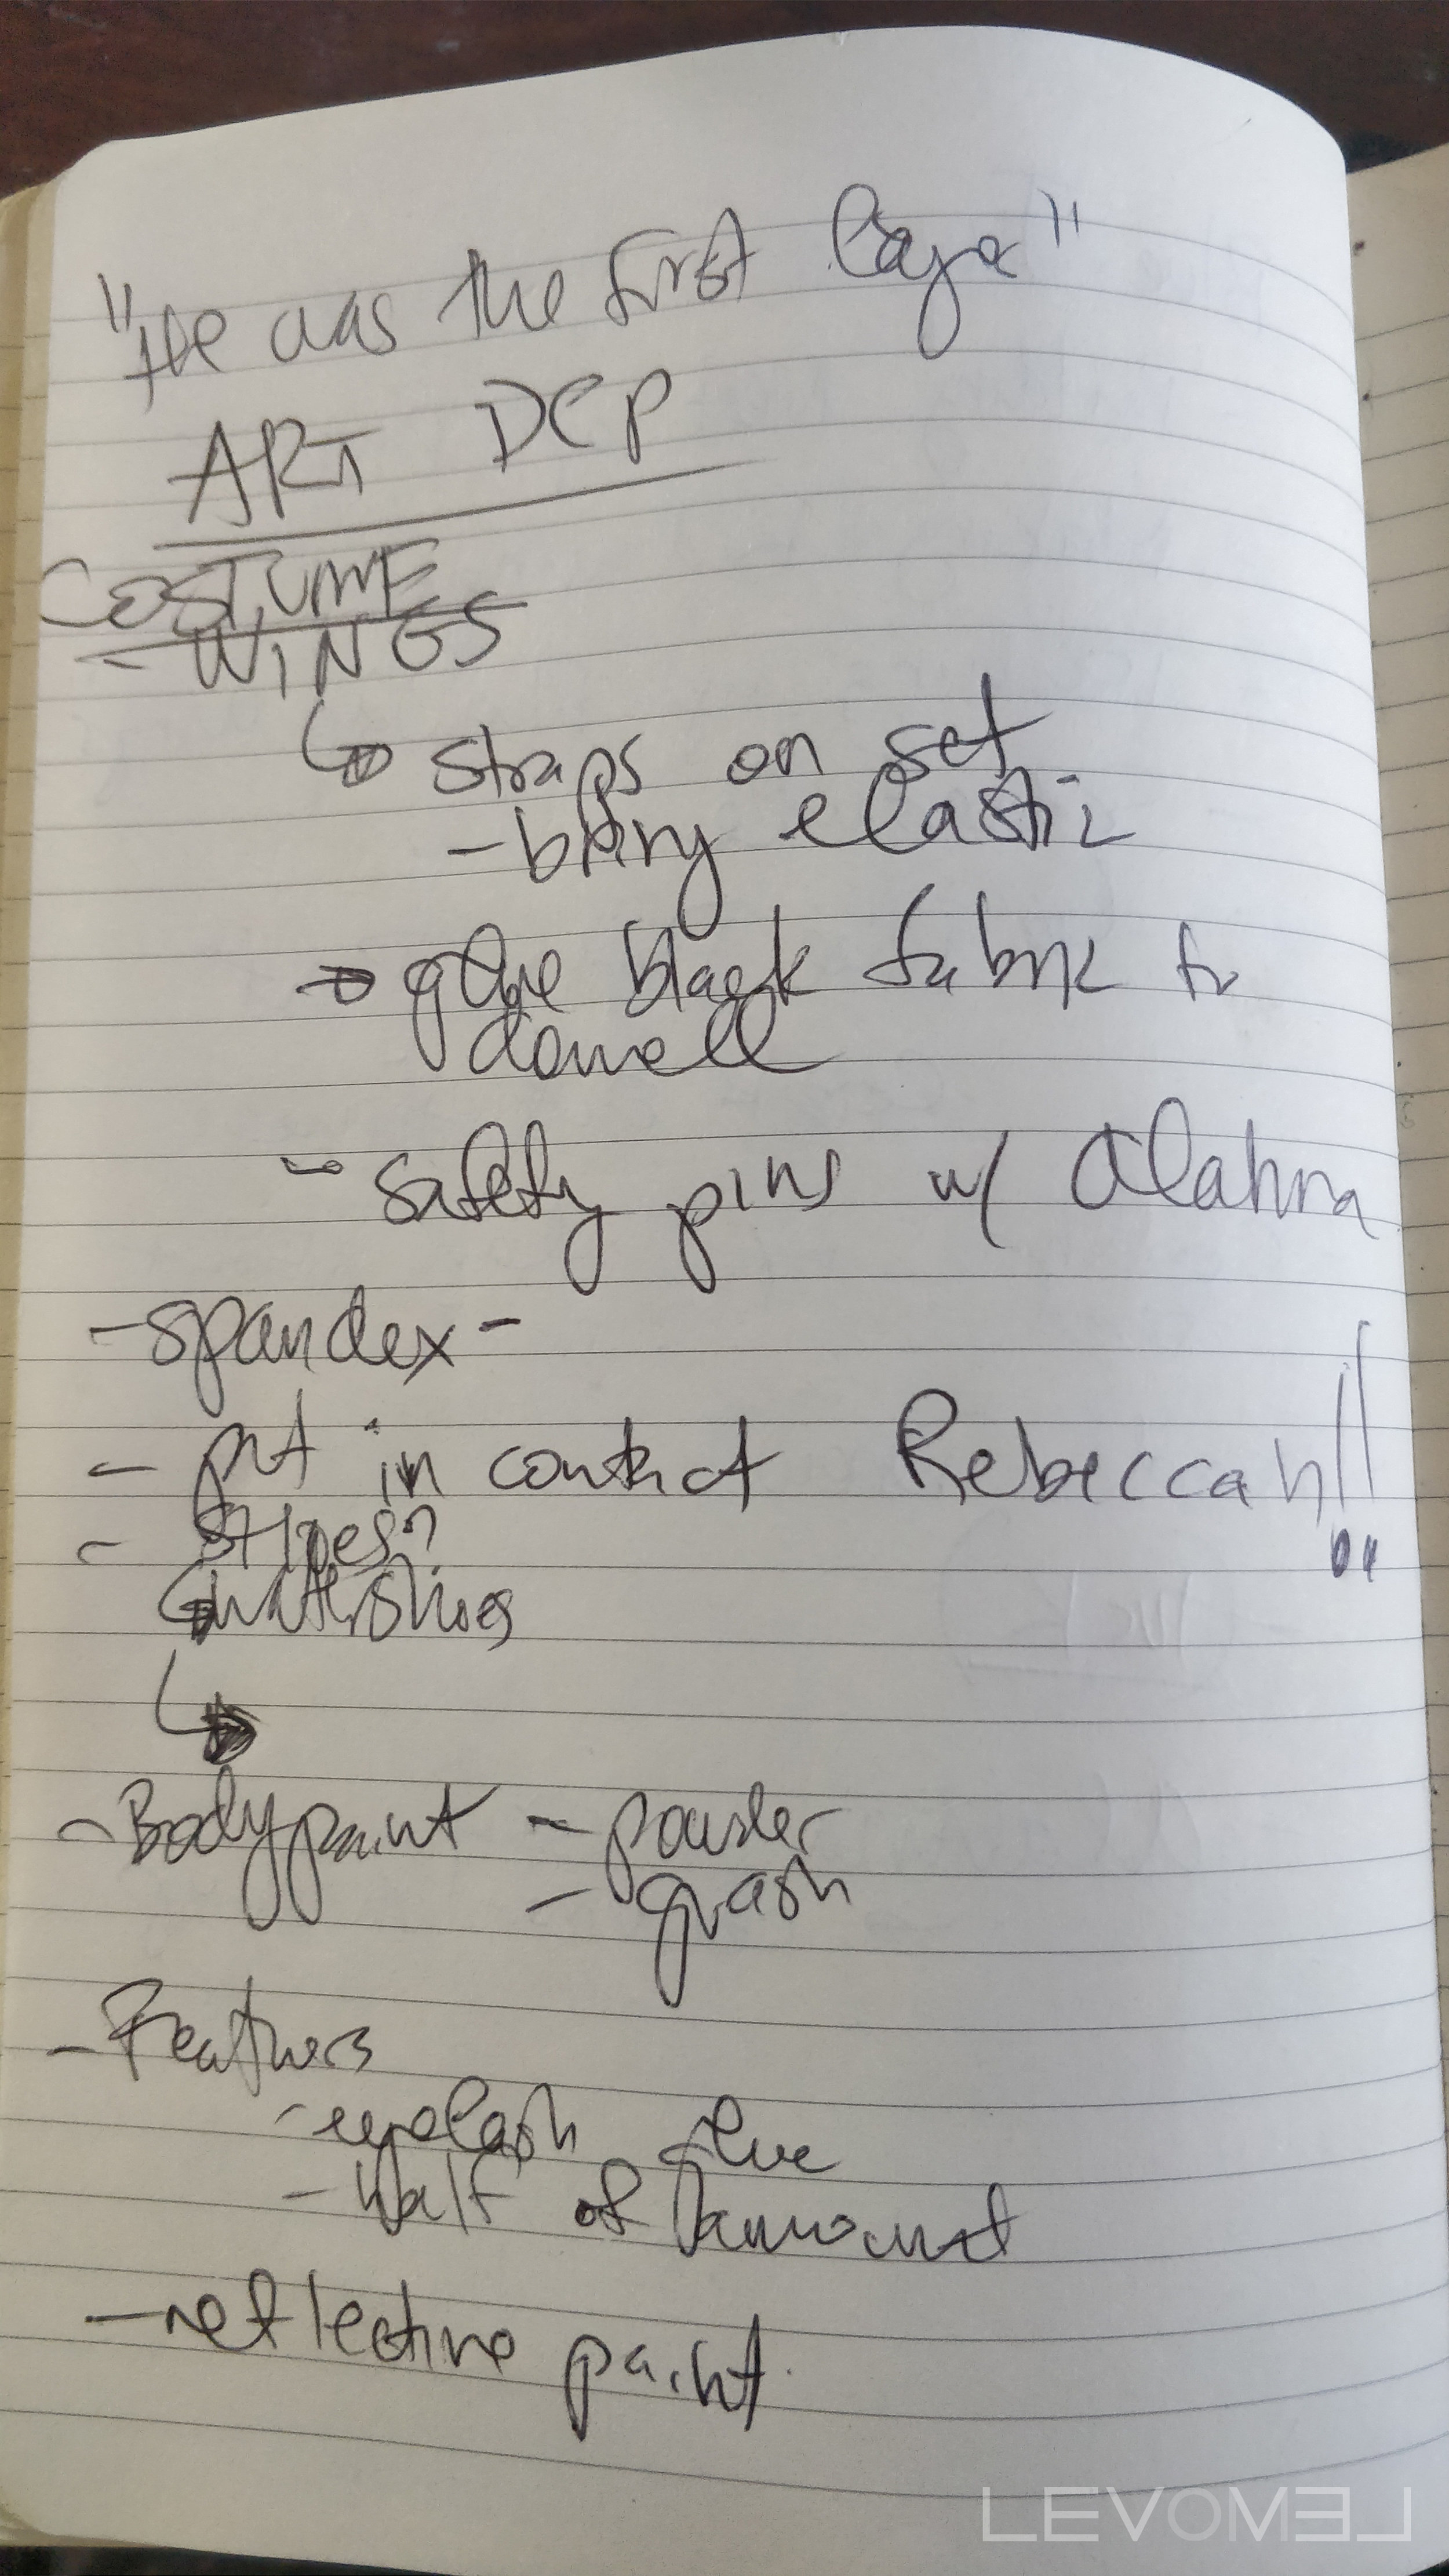 "He was the first Caga"
ART DEP
COSTUME
- WINGS
straps on set
- bring elastic
glue black fabric to
dowell
- safety pins w/ Alahna
- spandex -
- put in contact Rebeccah!!
- stipes?
- Bodypaint - powder
- quash
- Feathers
- eyelash glue
- Half of amount
- reflective paint.
LEVOMEL